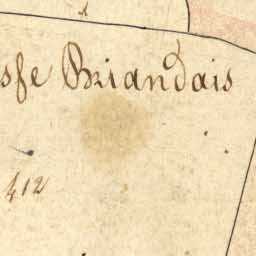 sse Briandais
412